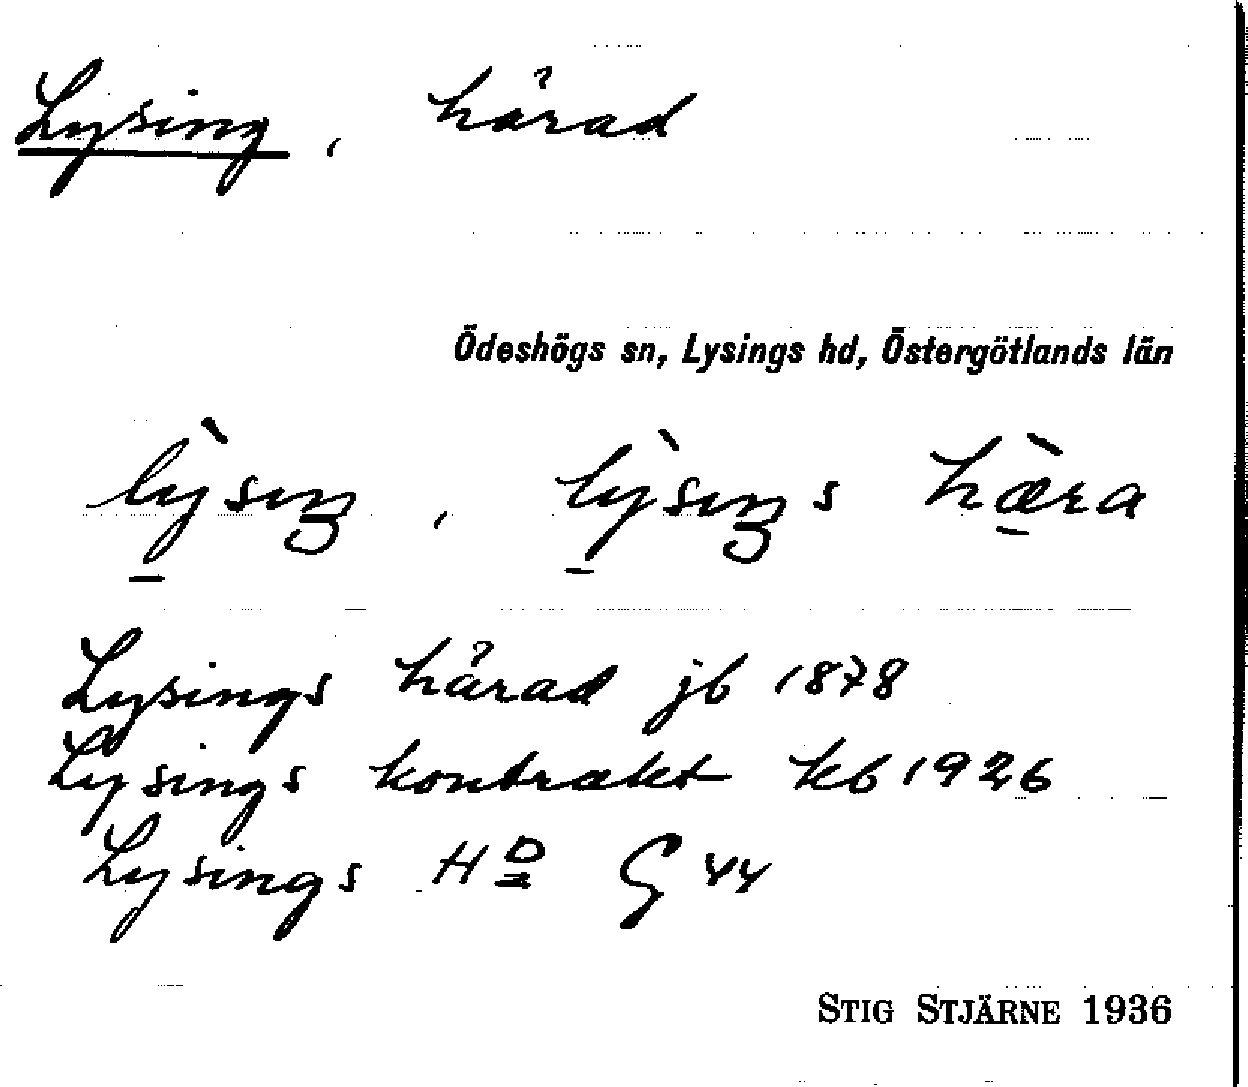 Lysing, härad
Ödeshögs sn, Lysings hd, Östergötlands län
lỳ̱sıŋ, lỳ̱sıŋs hæ̱̀ra
Lysings härad jb 1878
Lysings kontrakt kb 1926
Lysings HD G 44
STIG STJÄRNE 1936